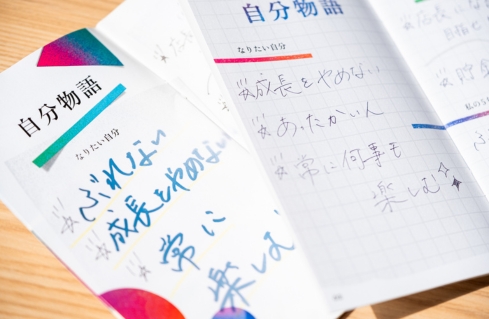 自分物語
なりたい自分
ぶれない
成長をやめない
常に
楽しむ
自分物語
なりたい自分
成長をやめない
あったかい人
常に何事も
楽しむ